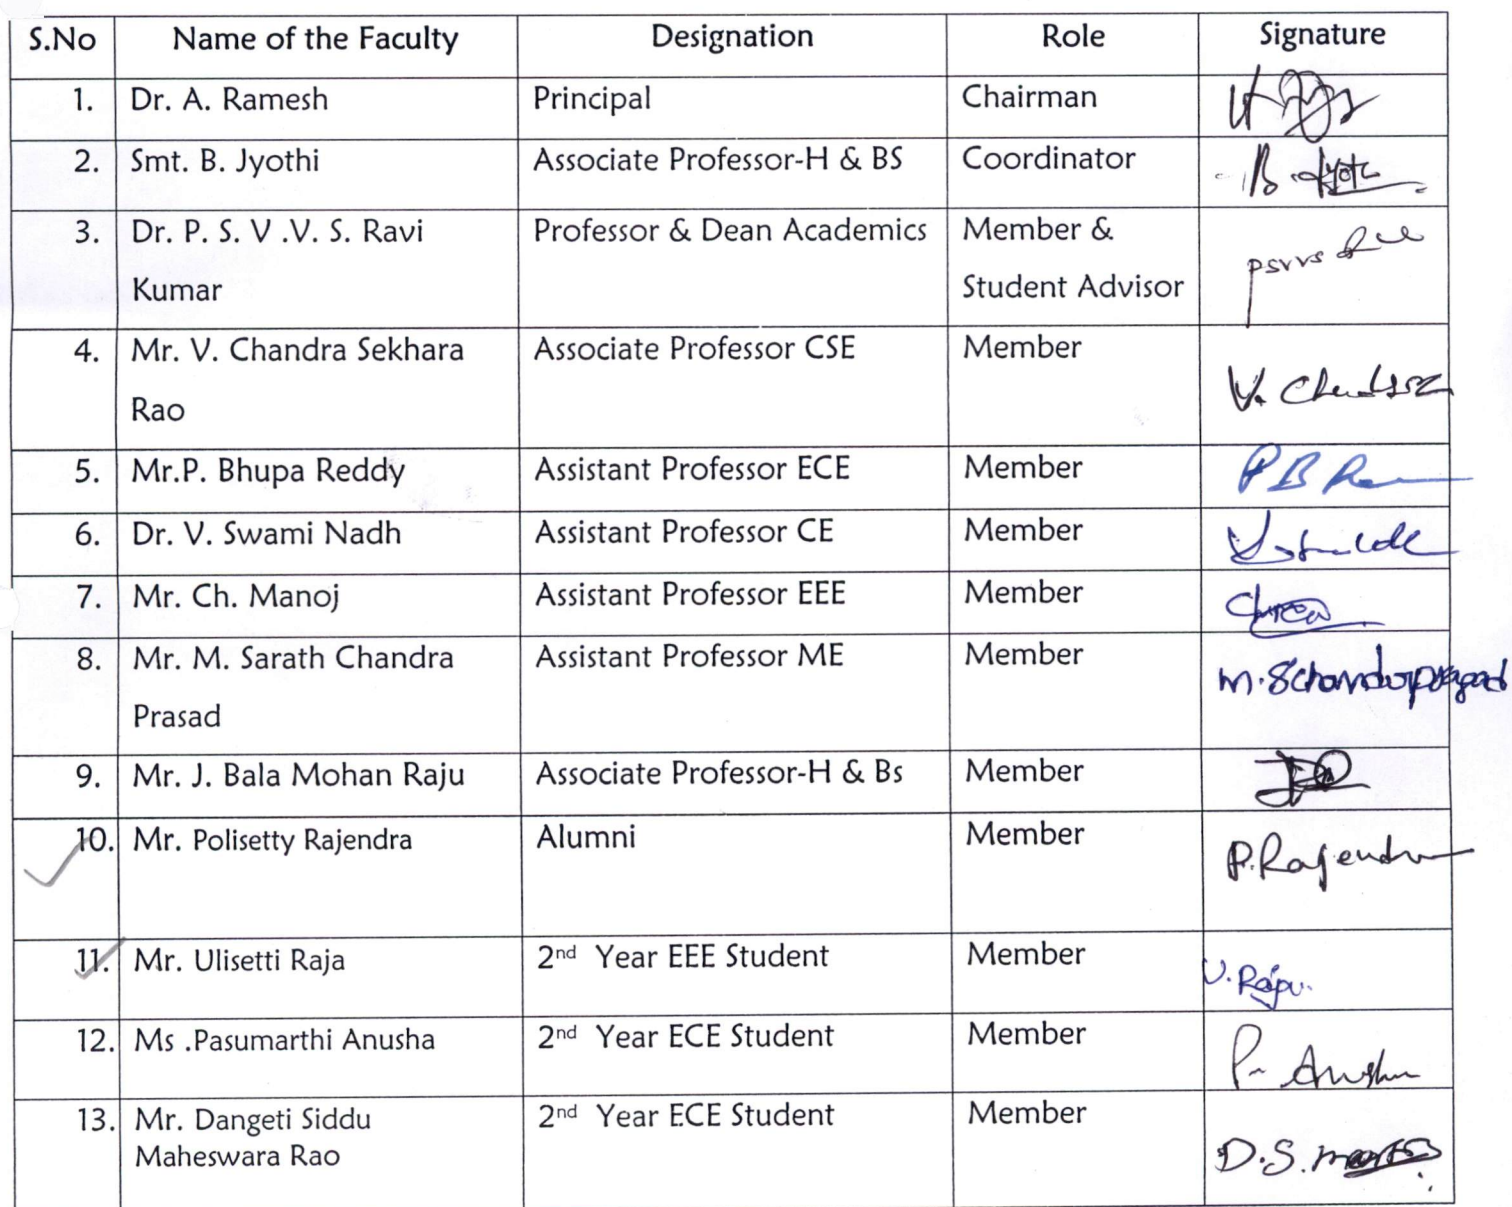 S.No Name of the Faculty Designation Role Signature
1. Dr. A. Ramesh Principal Chairman
2. Smt. B. Jyothi Associate Professor-H & BS Coordinator B. Jyothi
3. Dr. P. S. V .V. S. Ravi Professor & Dean Academics Member &
Kumar Student Advisor psvvs
4. Mr. V. Chandra Sekhara Associate Professor CSE Member
Rao V.
5. Mr.P. Bhupa Reddy Assistant Professor ECE Member P B
6. Dr. V. Swami Nadh Assistant Professor CE Member
7. Mr. Ch. Manoj Assistant Professor EEE Member
8. Mr. M. Sarath Chandra Assistant Professor ME Member
Prasad
9. Mr. J. Bala Mohan Raju Associate Professor-H & Bs Member
10. Mr. Polisetty Rajendra Alumni Member P. Rajendra
11. Mr. Ulisetti Raja 2nd Year EEE Student Member U. Raju.
12. Ms .Pasumarthi Anusha 2nd Year ECE Student Member P. Anusha
13. Mr. Dangeti Siddu 2nd Year ECE Student Member
Maheswara Rao D.S.